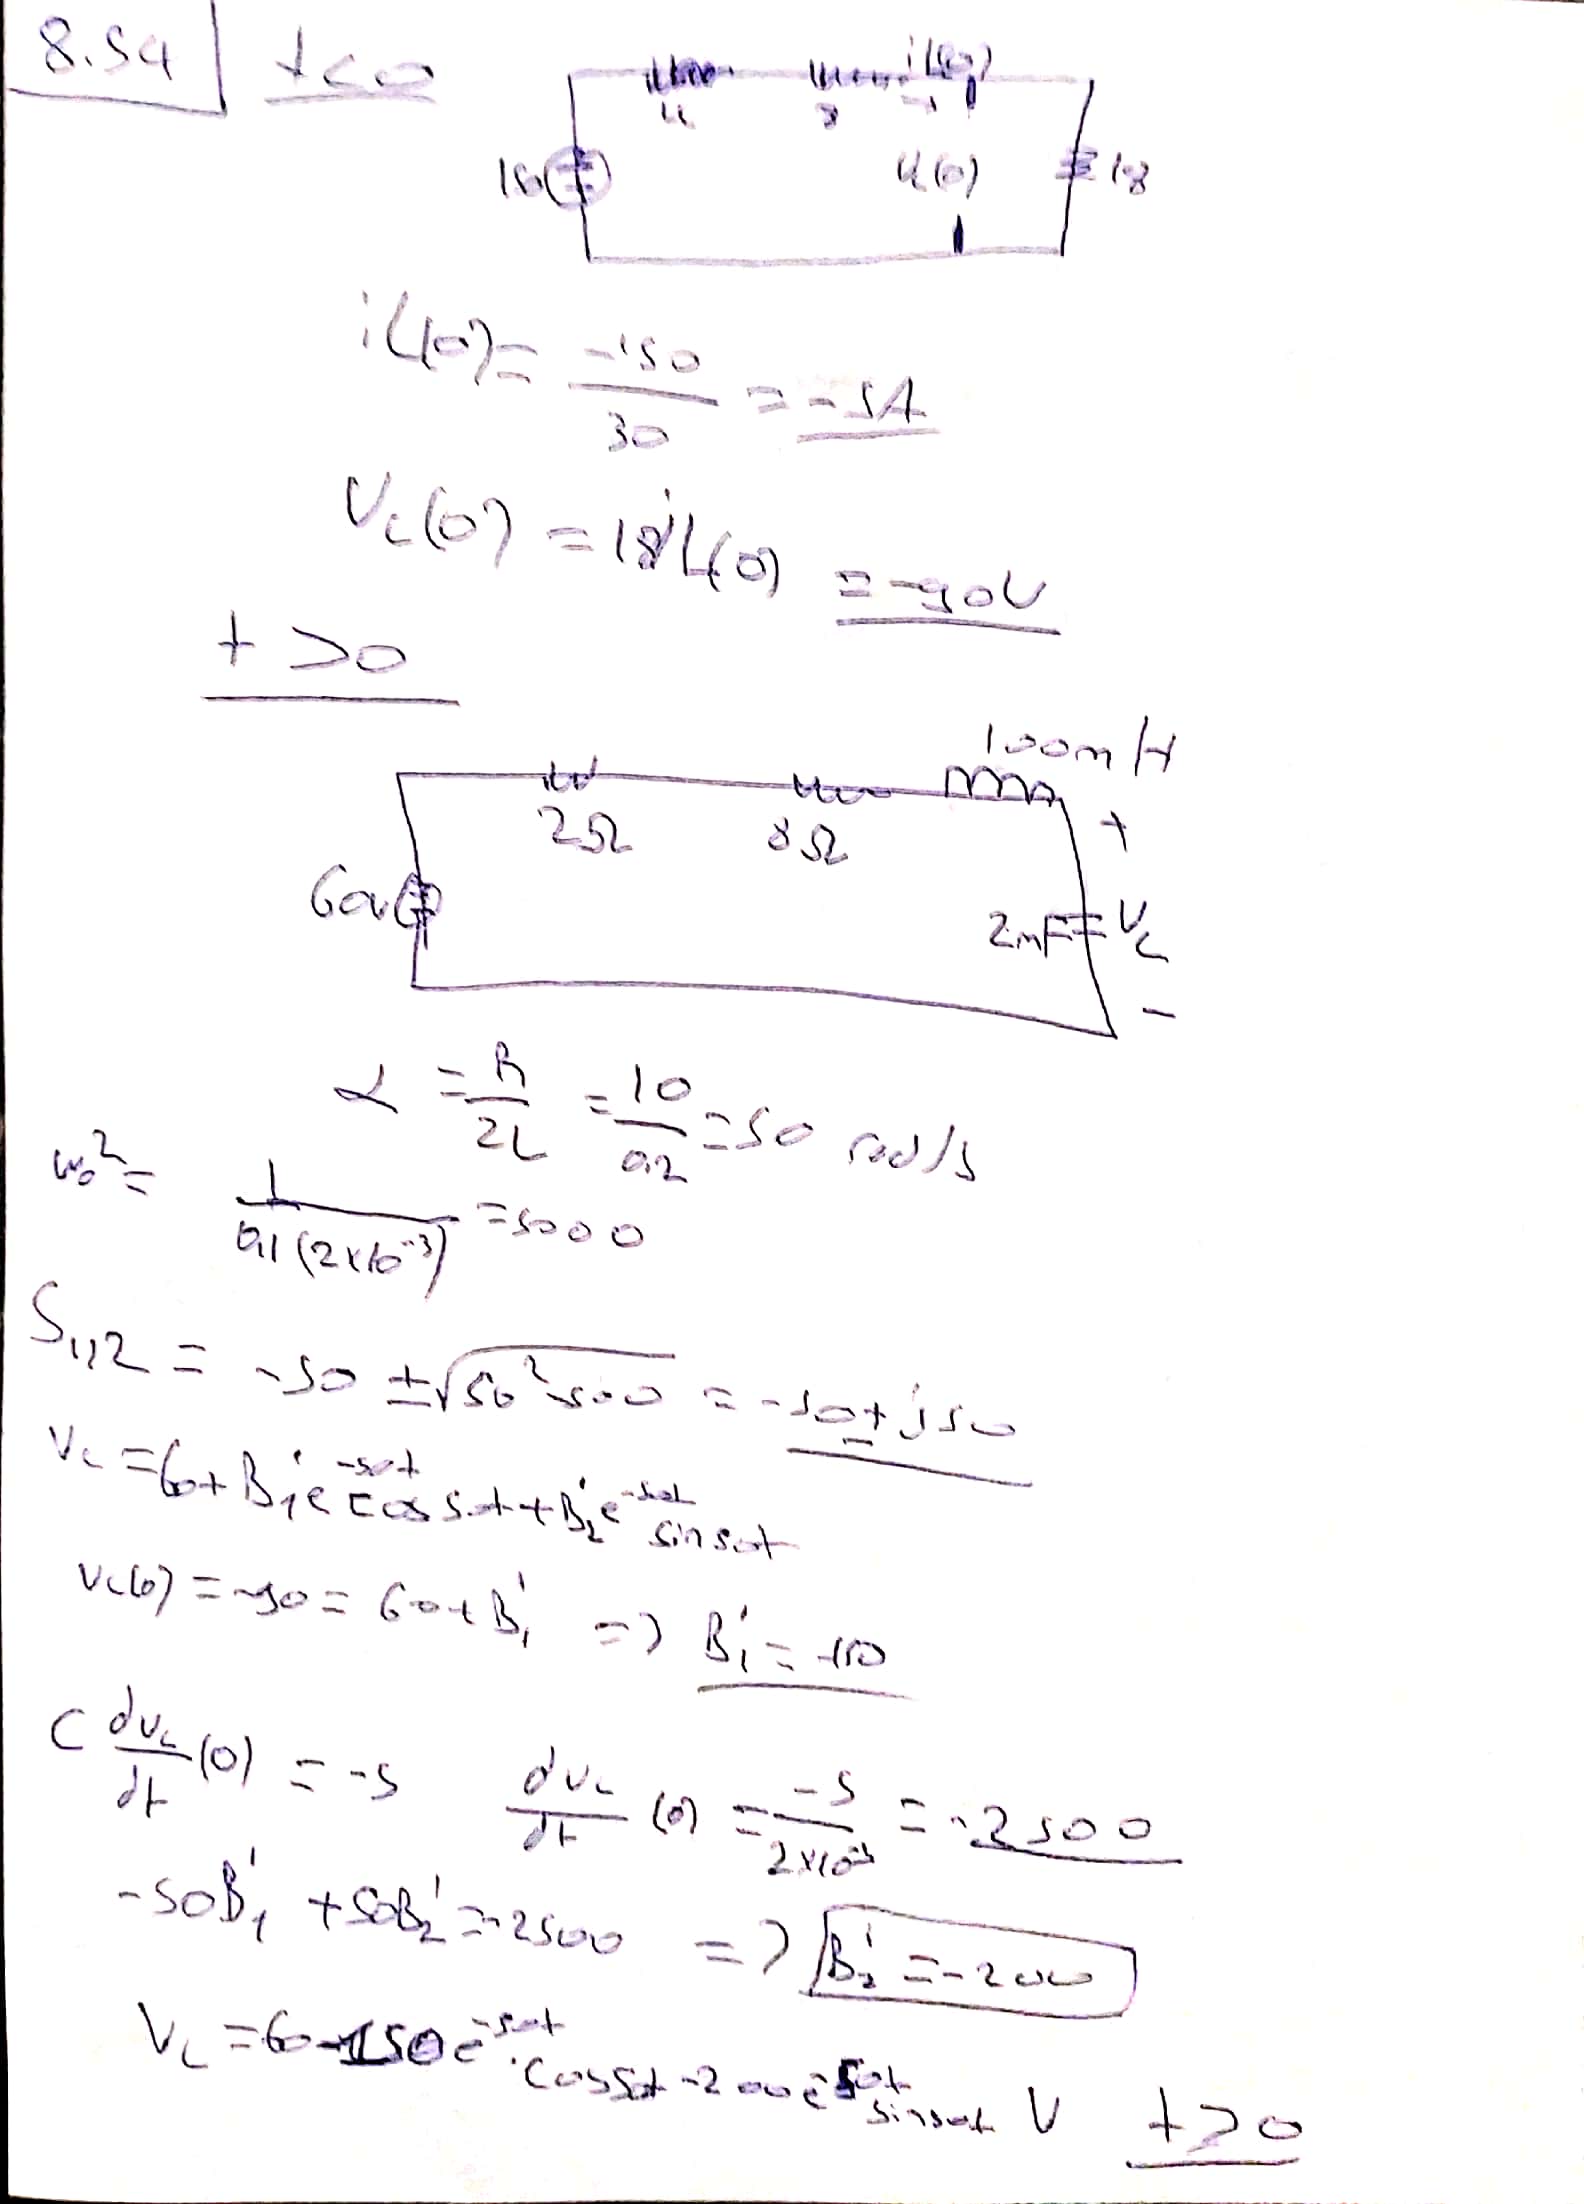 8.54 t<0
iL(0)
4 8
150 Vc(0) 18
iL(0) = -150/30 = -5A
Vc(0) = 18iL(0) = -90V
t>0
100mH
2Ω 8Ω
+
60V 2mF Vc
-
α = R/2L = 10/0,2 = 50 rad/s
ω₀² = 1/0,1(2x10⁻³) = 5000
S₁,₂ = -50 ± √50²-500 = -50±j50
Vc = 60+B₁'e⁻⁵⁰ᵗ cos50t+B₂'e⁻⁵⁰ᵗ sin50t
Vc(0) = -90 = 60+B₁' => B₁' = -150
C dVc/dt (0) = -5 dVc/dt (0) = -5/2x10⁻³ = -2500
-50B₁' +50B₂' = -2500 => B₂' = -200
Vc = 60-150e⁻⁵⁰ᵗ.cos50t-200e⁻⁵⁰ᵗ sin50t V t>0